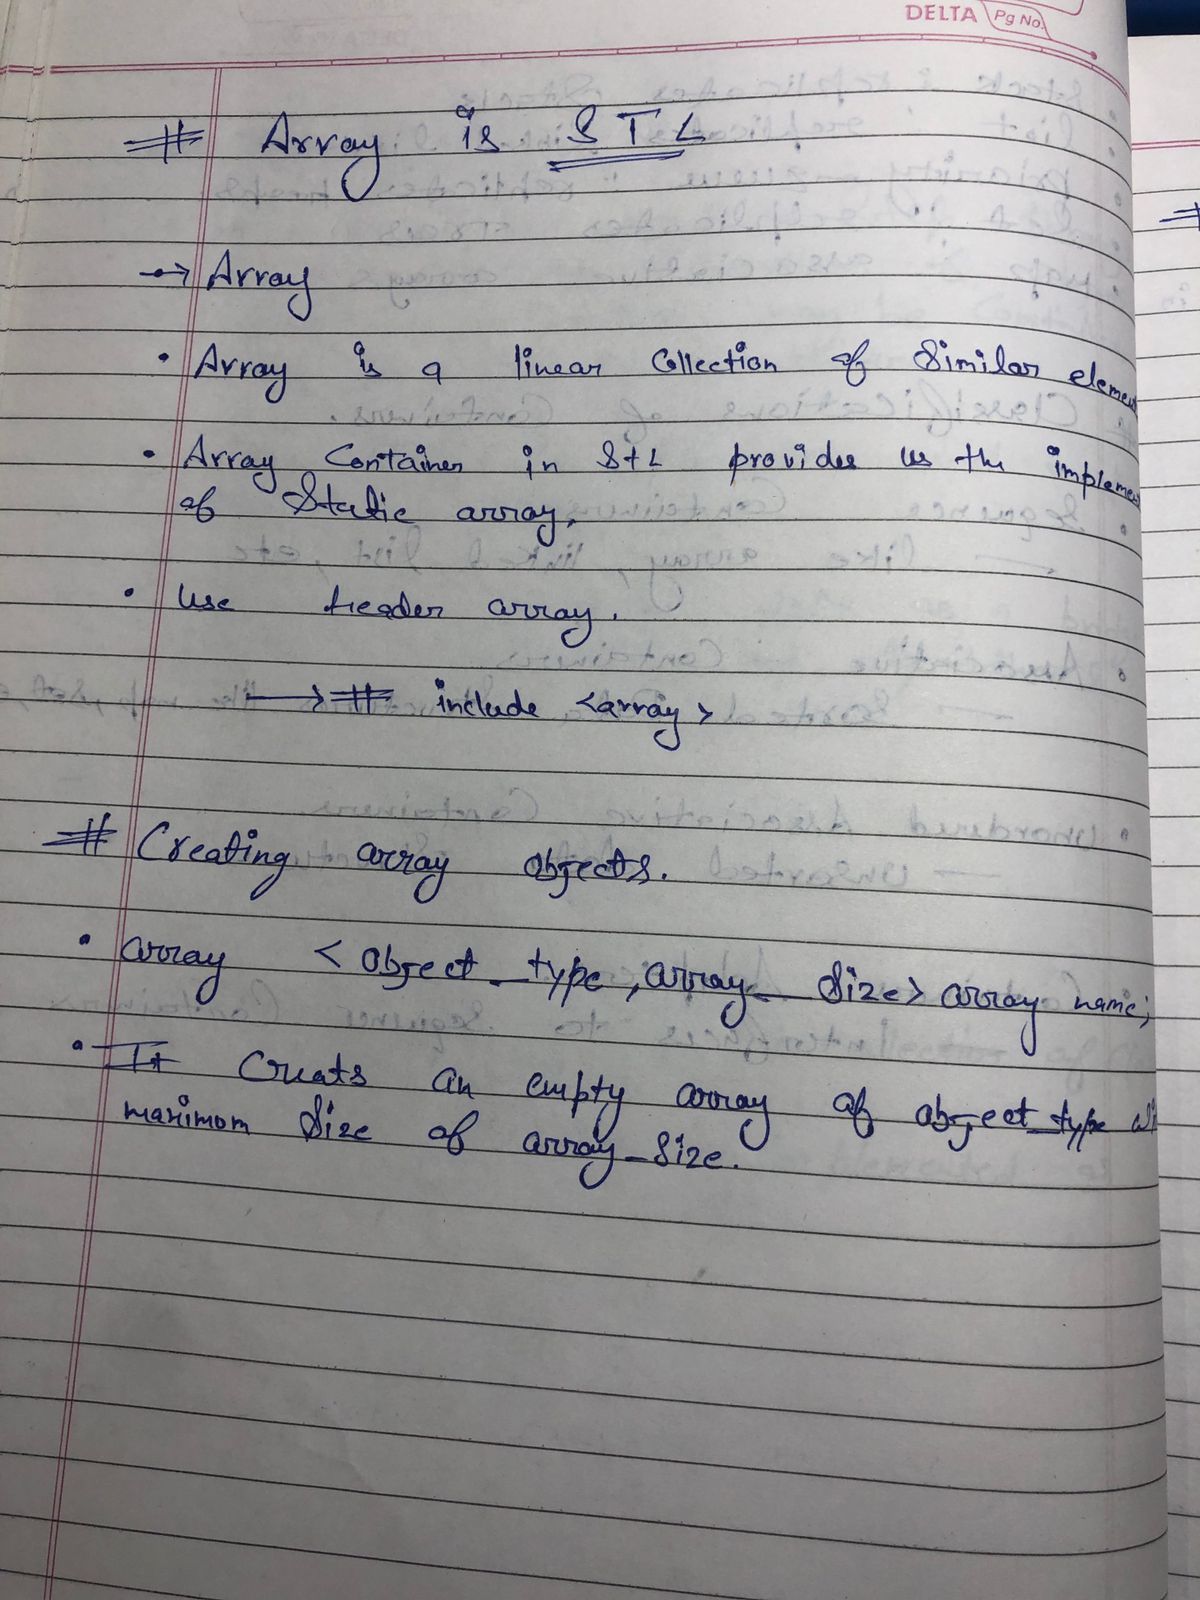 DELTA Pg No.
# Array is STL
→ Array
• Array is a linear Collection of Similar element
• Array Container in StL provides us the implemen
of Static array.
• Use header array.
→ # include <array>
# Creating array objects.
• array < object_type, array_size> array name;
• It Creats an empty array of object_type wi
maximom Size of array_size.